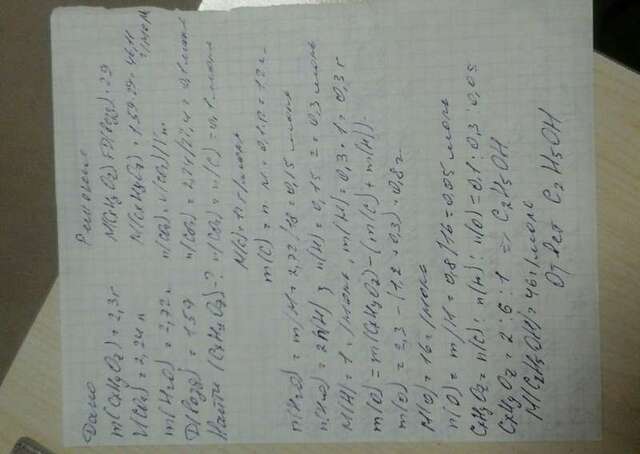 Дано
m(CxHyOz) = 2,3г
V(CO2) = 2,24 л
m(H2O) = 2,72г.
D(возд) = 1.59
Найти (CxHyOz)-?
Решение
M(CxHyOz) = D(возд)·29
M(CxHyOz) = 1.59·29 = 46,11 г/моль
n(CO2) = V(CO2)/Vm
n(CO2) = 2,24/22,4 = 0,1 моль
n(CO2) = n(C) = 0,1 моль
M(C) = 12 г/моль
m(C) = n·M = 0,1·12 = 1,2 г.
n(H2O) = m/M = 2,72/18 = 0,15 моль
n(H2O) = 2n(H); n(H) = 0,15·2 = 0,3 моль
M(H) = 1 г/моль; m(H) = 0,3·1 = 0,3 г
m(O) = m(CxHyOz) - (m(C) + m(H)).
m(O) = 2,3 - (1.2 + 0,3) = 0,8 г
M(O) = 16 г/моль
n(O) = m/M = 0,8/16 = 0,05 моль
CxHyOz = n(C) : n(H) : n(O) = 0,1 : 0,3 : 0,05
CxHyOz = 2 : 6 : 1 => C2H5OH
M(C2H5OH) = 46 г/моль
Ответ C2H5OH